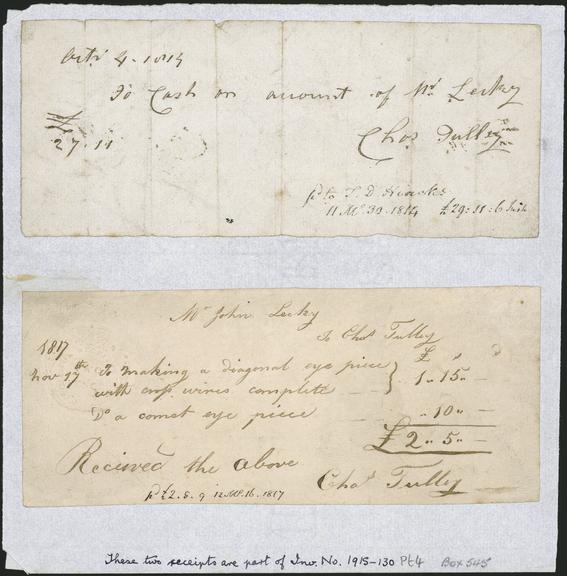 Octr 4 - 1814
To Cash on account of Mr Lecky
£
27 . 14
Chas Tulley
pd to T. D. Hincks
11 Mo 30 - 1814 £29 : 11 : 6 Irish
Mr John Lecky
To Chas Tulley
1817 £ s
Nov 17th To making a diagonal eye piece } 1 " 15 " —
with crop wires complete — —
Do a comet eye piece " 10 " —
£ 2 " 5 " —
Recieved the above
Chas Tulley
pd £2 . 8 . 9 12 Mo 16 . 1817
These two receipts are part of Inv. No. 1915-130 Pt4 Box 545